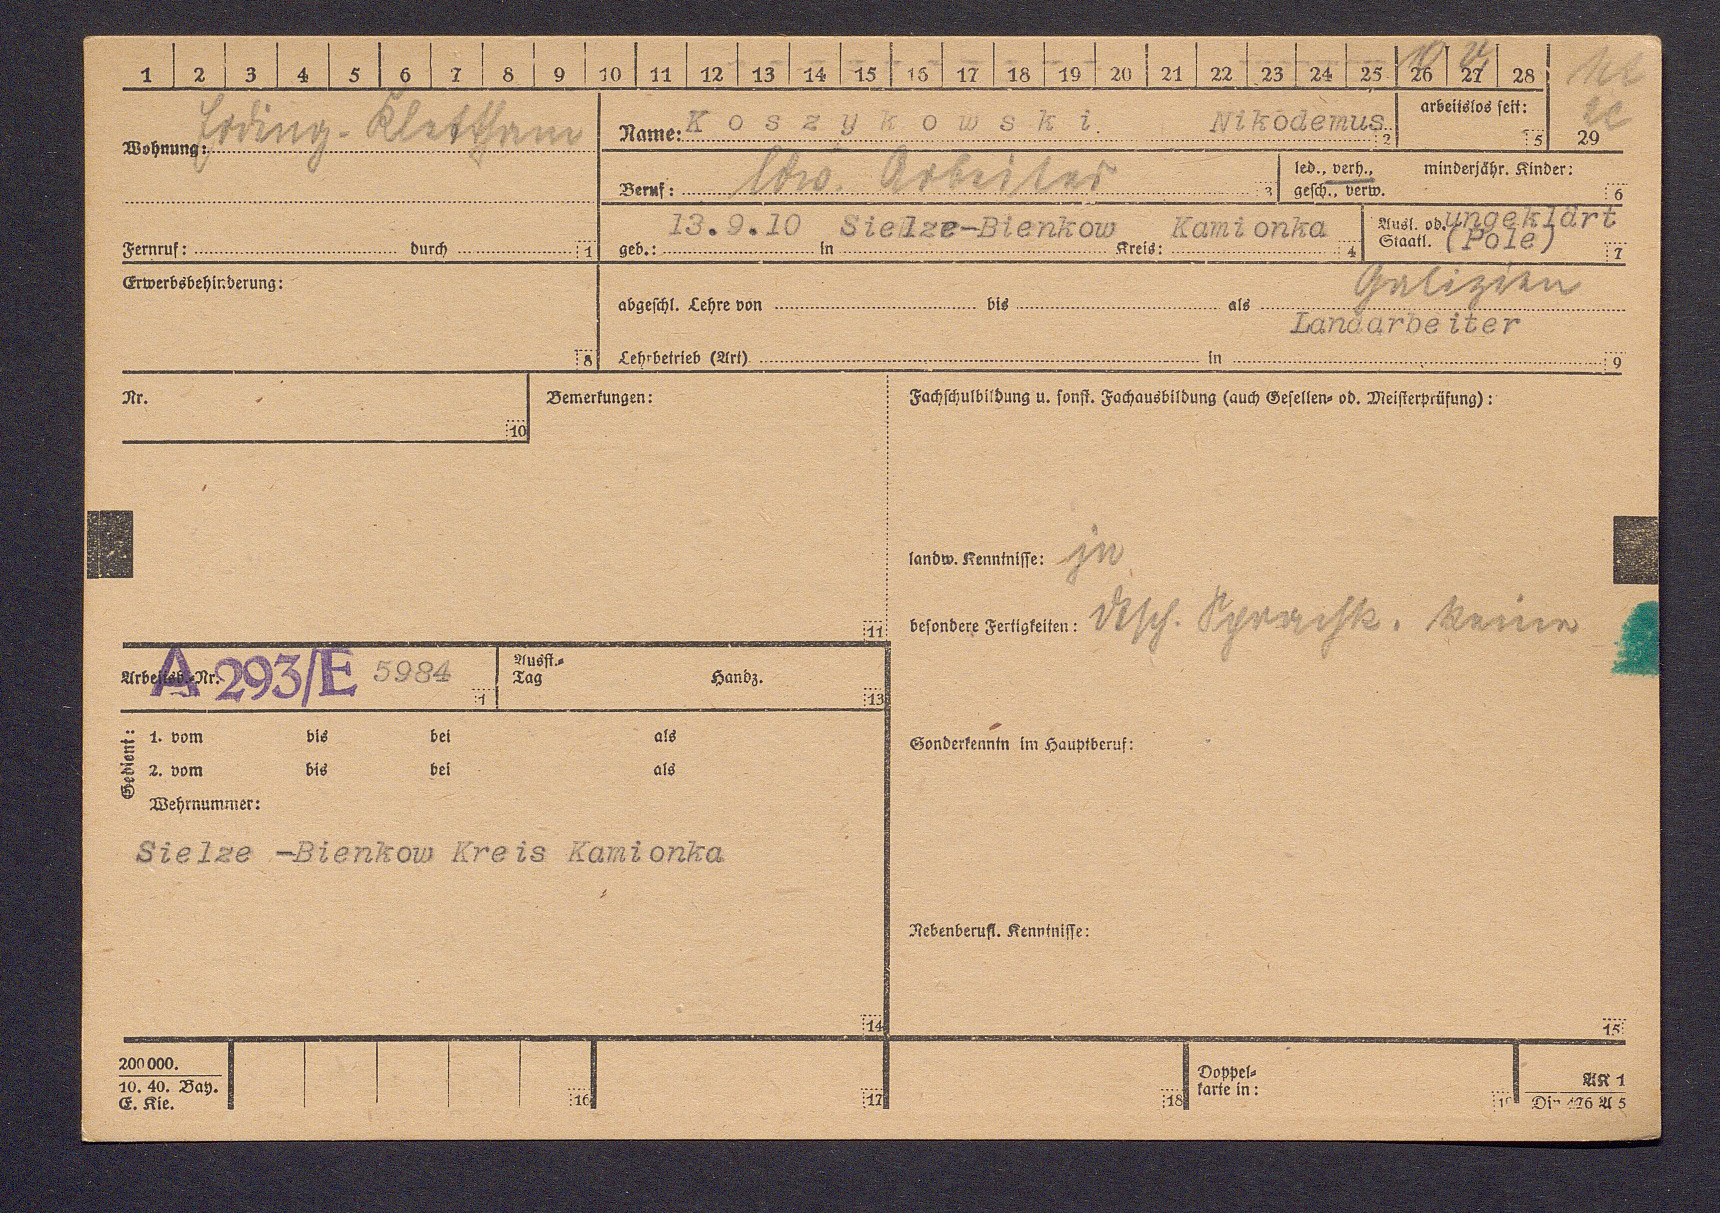 1 2 3 4 5 6 7 8 9 10 11 12 13 14 15 16 17 18 19 20 21 22 23 24 25 26 27 28
29
Wohnung: Erding-Klettham
Name: Koszykowski Nikodemus 2
arbeitslos seit: 5
Beruf: ldw. Arbeiter 3
led., verh., gesch., verw.
minderjähr. Kinder: 6
Fernruf: durch 1
geb.: 13.9.10 in Sielze-Bienkow Kreis: Kamionka 4
Ausl. od. Staatl. ungeklärt (Pole) 7
Erwerbsbehinderung: 8
Galizien
abgeschl. Lehre von bis als
Landarbeiter
Lehrbetrieb (Art) in 9
Nr. 10
Bemerkungen: 11
Fachschulbildung u. sonst. Fachausbildung (auch Gesellen- od. Meisterprüfung):
landw. Kenntnisse: ja
besondere Fertigkeiten: dtsch. Sprachk. keine
Arbeitsb.-Nr. A 293/E 5984 1
Ausst.-Tag Handz. 13
Gedient:
1. vom bis bei als
2. vom bis bei als
Wehrnummer:
Sielze -Bienkow Kreis Kamionka
14
Sonderkenntn im Hauptberuf:
Nebenberufl. Kenntnisse:
15
200000.
10. 40. Bay.
E. Kie.
16 17 18
Doppel-
karte in:
AK 1
Din 476 A 5